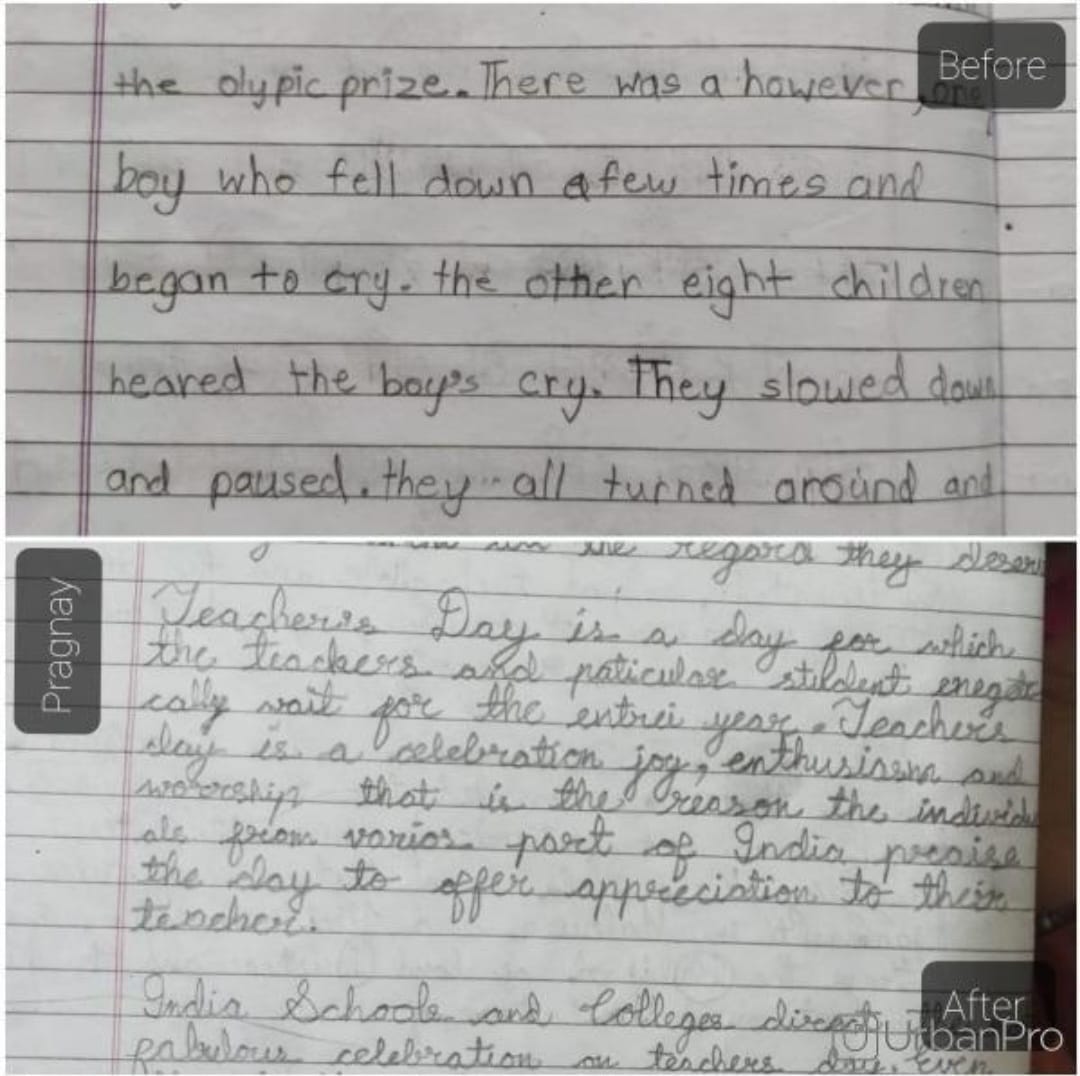 Before
the olypic prize. There was a however, one
boy who fell down a few times and
began to cry. the other eight children
heared the boy's cry. They slowed down
and paused. they all turned around and
the regard they deserv
Pragnay
Teacher's Day is a day for which
the teachers and paticular student eneget
cally wait for the entrei year. Teachers
day is a celebration joy, enthusiasm and
worership that is the reason the individu
als from varios part of India praise
the day to offer appreciation to their
teacher.
India Schools and Colleges direct
fabulous celebration on teachers day. Even
After
UrbanPro